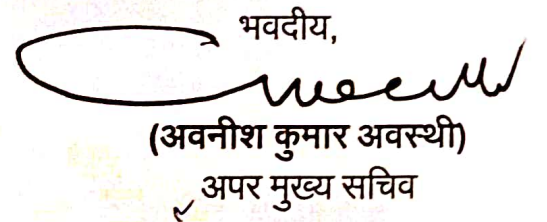 भवदीय,
(अवनीश कुमार अवस्थी)
अपर मुख्य सचिव